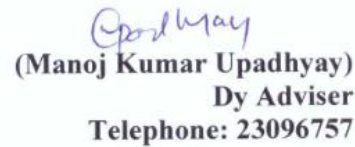 (Manoj Kumar Upadhyay)
Dy Adviser
Telephone: 23096757